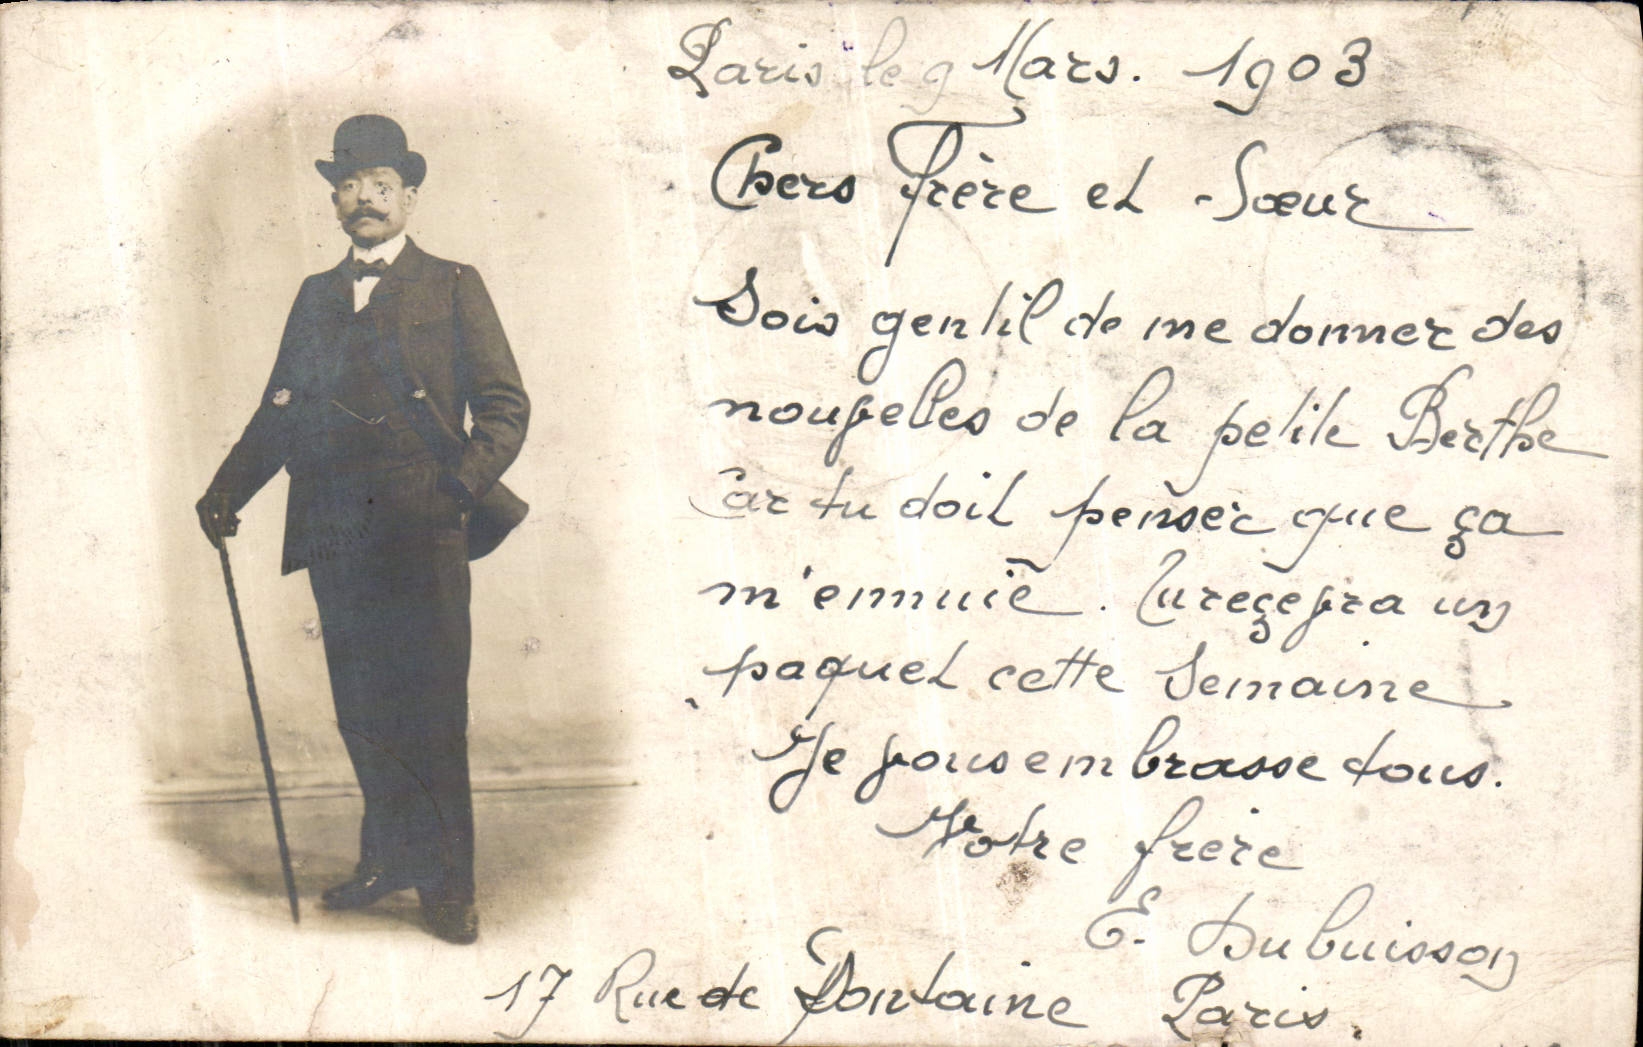 Paris le 9 Mars. 1903
Chers Frère et Sœur
Sois gentil de me donner des
nouvelles de la petite Berthe
Car tu doit penser que ça
m'ennuie. Tu reçevra un
paquet cette Semaine
Je vous embrasse tous.
Votre frère
E. Dubuisson
17 Rue de Fontaine Paris.